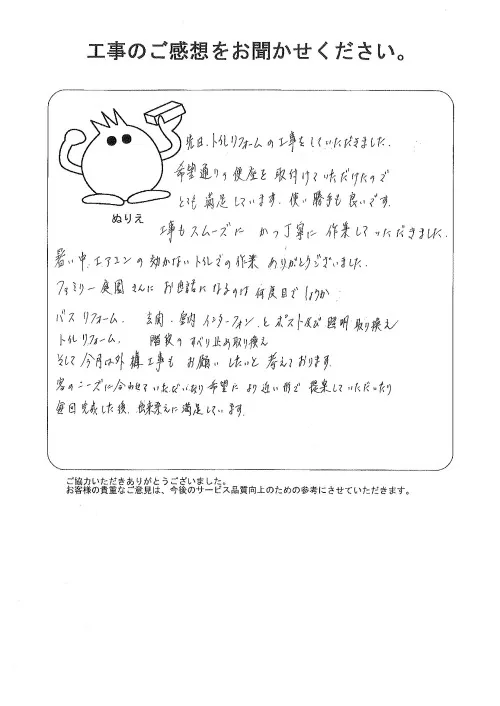 工事のご感想をお聞かせください。
先日、トイレリフォームの工事をしていただきました。
希望通りの便座を取付けていただけたので
とても満足しています。使い勝手も良いです。
ぬりえ
工事もスムーズにかつ丁寧に作業していただきました。
暑い中、エアコンの効かないトイレでの作業ありがとうございました。
ファミリー庭園さんにお世話になるのは何度目でしょうか
バスリフォーム、玄関・室内インターフォンとポスト及び照明取り換え
トイレリフォーム、階段のすべり止め取り換え
そして今月は外構工事もお願いしたいと考えております。
客のニーズに合わせていただいたり希望により近い形で提案していただいたり
毎回完成した後、出来栄えに満足しています。
ご協力いただきありがとうございました。
お客様の貴重なご意見は、今後のサービス品質向上のための参考にさせていただきます。